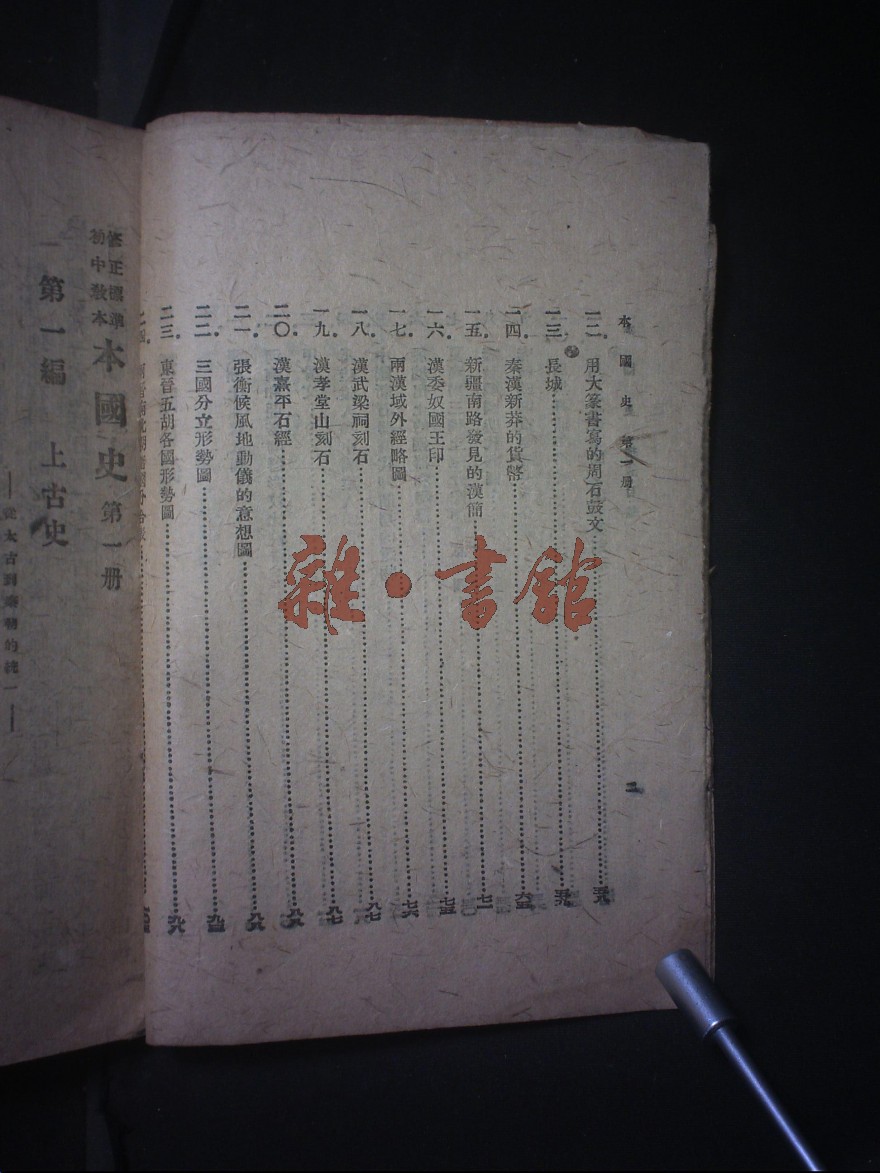 本國史 第一册
二
一二. 用大篆書寫的周石鼓文
一三. 長城
一四. 秦漢新莽的貨幣
一五. 新疆南路發見的漢簡
一六. 漢委奴國王印
一七. 兩漢域外經略圖
一八. 漢武梁祠刻石
一九. 漢孝堂山刻石
二〇. 漢熹平石經
二一. 張衡候風地動儀的意想圖
二二. 三國分立形勢圖
二三. 東晉五胡各國形勢圖
修正標準
初中教本
本國史 第一册
第一編 上古史
——從太古到秦朝的統一——
雜·書館